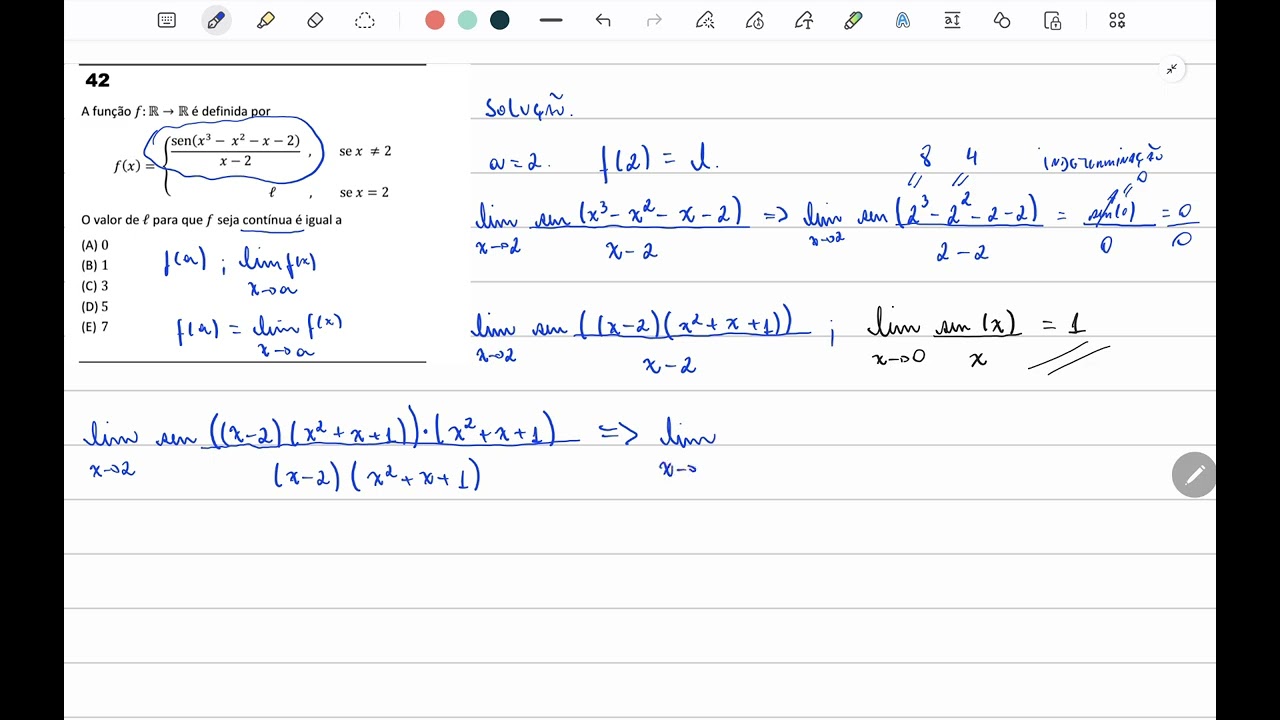 42
A função f: ℝ → ℝ é definida por
f(x) = { sen(x³ − x² − x − 2) / x − 2 , se x ≠ 2
ℓ , se x = 2
O valor de ℓ para que f seja contínua é igual a
(A) 0
(B) 1
(C) 3
(D) 5
(E) 7
f(a) ; lim f(x)
x→a
f(a) = lim f(x)
x→a
SOLUÇÃO.
a = 2. f(2) = l.
8 4 INDETERMINAÇÃO
0
lim sen (x³ − x² − x − 2) / x − 2 => lim sen (2³ − 2² − 2 − 2) / 2 − 2 = sen(0) / 0 = 0 / 0
x→2 x→2
lim sen ((x−2)(x² + x + 1)) / x − 2 ; lim sen (x) / x = 1
x→2 x→0
lim sen ((x−2)(x² + x + 1)) · (x² + x + 1) / (x−2)(x² + x + 1) => lim
x→2 x→